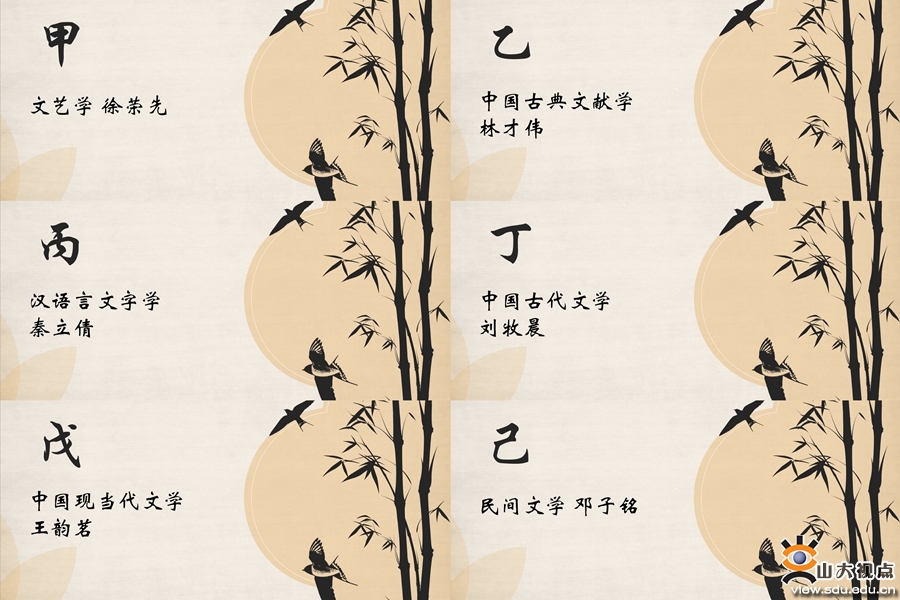 甲
文艺学 徐荣先
乙
中国古典文献学
林才伟
丙
汉语言文字学
秦立倩
丁
中国古代文学
刘牧晨
戊
中国现当代文学
王韵茗
己
民间文学 邓子铭
山大视点
view.sdu.edu.cn